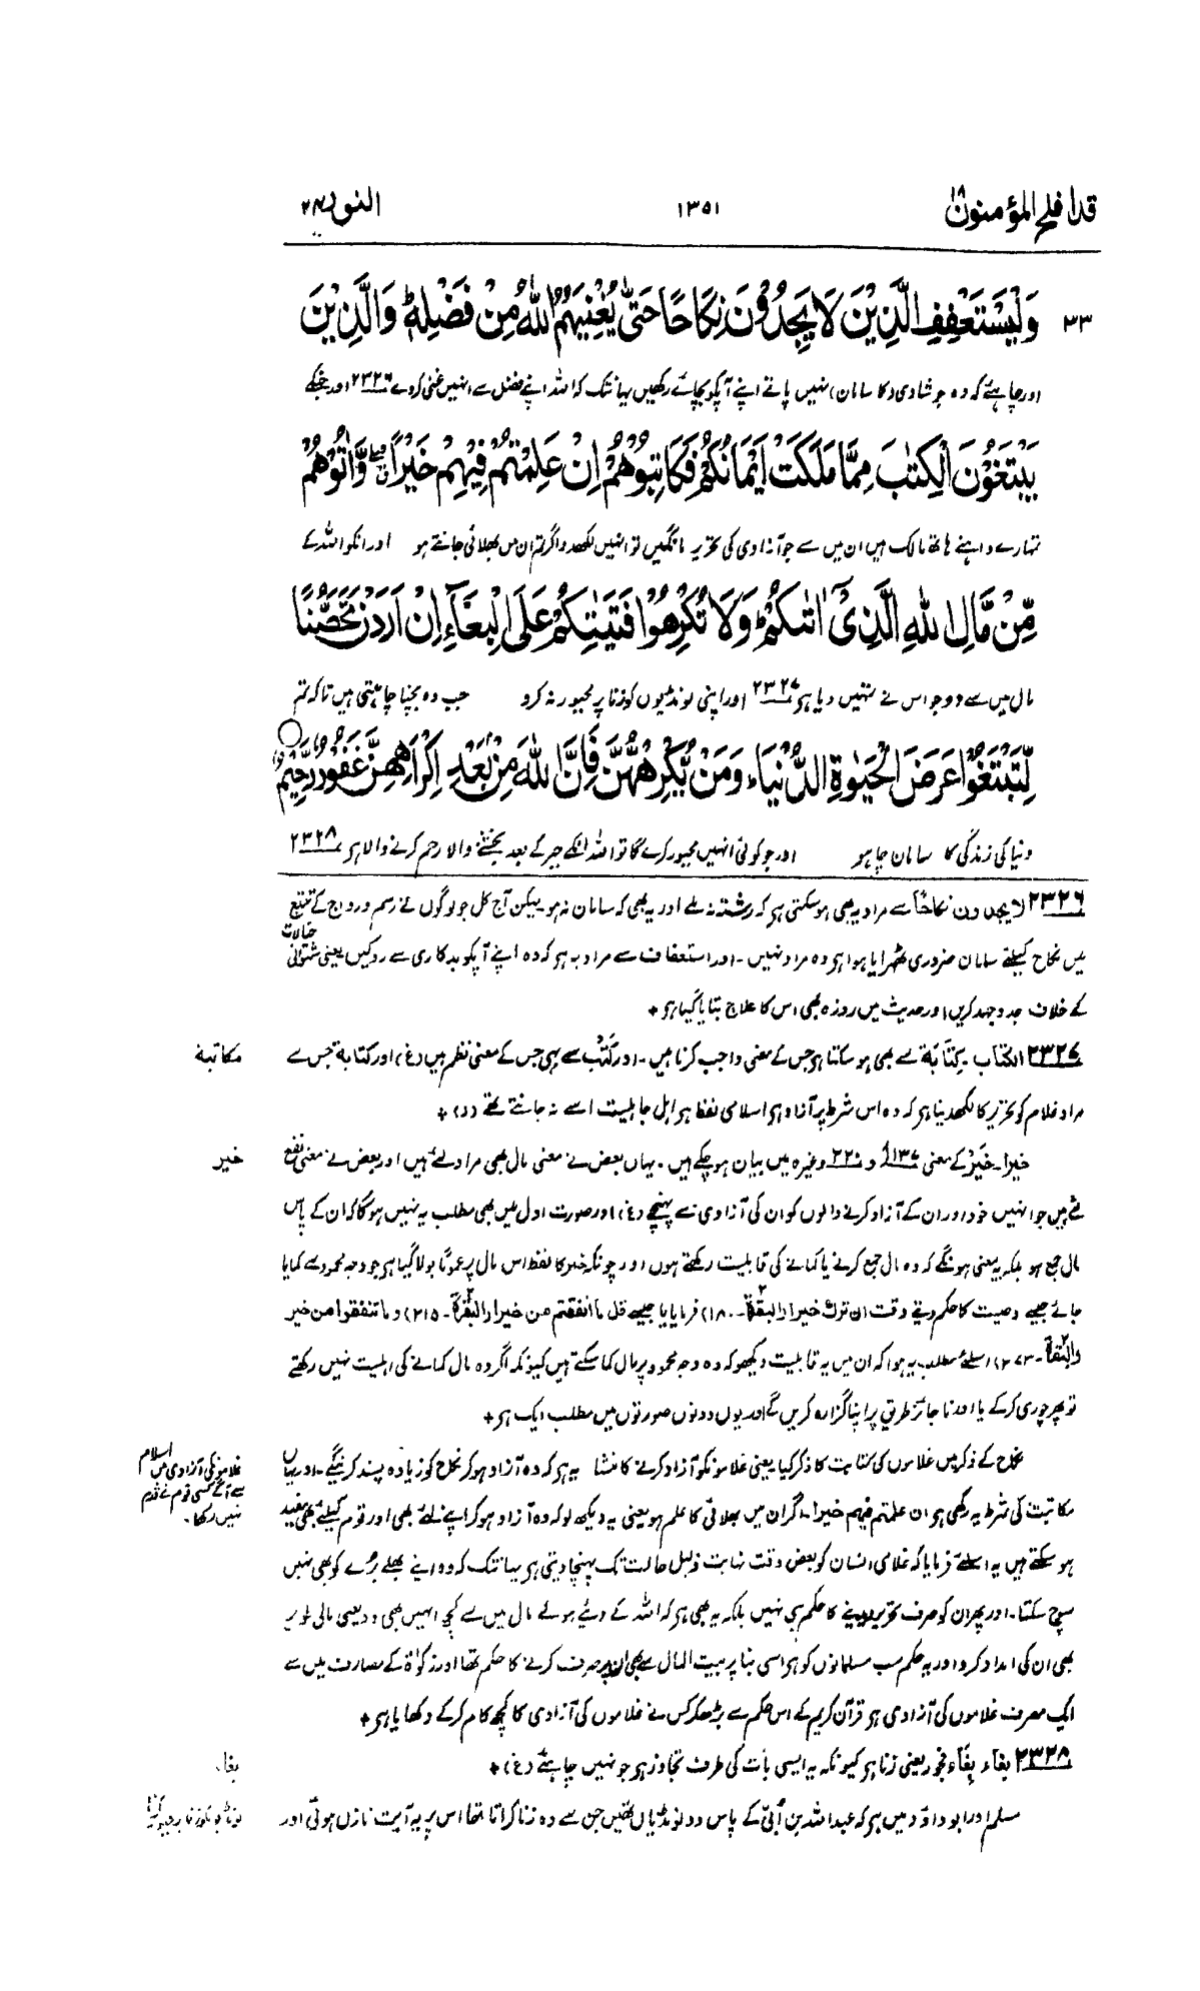 قد افلح المؤمنون ۱۸
۱۳۵۱
النور ۲۴
۳۳
وَلْيَسْتَعْفِفِ الَّذِيْنَ لَا يَجِدُوْنَ نِكَاحًا حَتّٰى يُغْنِيَهُمُ اللّٰهُ مِنْ فَضْلِهٖ ؕ وَالَّذِيْنَ
اور چاہئے کہ وہ جو شادی (کا سامان) نہیں پاتے اپنے آپکو بچائے رکھیں یہانتک کہ اللہ اپنے فضل سے انہیں غنی کردے ۲۳۲۶ اور جنکے
يَبْتَغُوْنَ الْكِتٰبَ مِمَّا مَلَكَتْ اَيْمَانُكُمْ فَكَاتِبُوْهُمْ اِنْ عَلِمْتُمْ فِيْهِمْ خَيْرًا ۖ وَّاٰتُوْهُمْ
تمہارے داہنے ہاتھ مالک ہیں ان میں سے جو آزادی کی تحریر مانگیں تو انہیں لکھدو اگر تم ان میں بھلائی جانتے ہو اور انکو اللہ کے
مِّنْ مَّالِ اللّٰهِ الَّذِيْۤ اٰتٰىكُمْ ؕ وَلَا تُكْرِهُوْا فَتَيٰتِكُمْ عَلَى الْبِغَآءِ اِنْ اَرَدْنَ تَحَصُّنًا
مال میں سے دو جو اس نے تمہیں دیا ہو ۲۳۲۷ اور اپنی لونڈیوں کو زنا پر مجبور نہ کرو جب وہ بچنا چاہتی ہیں تاکہ تم
لِّتَبْتَغُوْا عَرَضَ الْحَيٰوةِ الدُّنْيَا ؕ وَمَنْ يُّكْرِهْهُّنَّ فَاِنَّ اللّٰهَ مِنْۢ بَعْدِ اِكْرَاهِهِنَّ غَفُوْرٌ رَّحِيْمٌ
دنیا کی زندگی کا سامان چاہو اور جو کوئی انہیں مجبور کرے گا تو اللہ انکے جبر کے بعد بخشنے والا رحم کرنے والا ہو ۲۳۲۸
۲۳۲۶ لا یجدون نکاحًا سے مراد یہ بھی ہوسکتی ہو کہ رشتہ نہ ملے اور یہ بھی کہ سامان نہ ہو۔ لیکن آج کل جو لوگوں نے رسم ورواج کے تتبع
میں نکاح کیلئے سامان ضروری ٹھہرایا ہوا ہو وہ مراد نہیں۔ اور استعفاف سے مراد یہ ہو کہ وہ اپنے آپکو بدکاری سے روکیں یعنی شہوانی خیالات
کے خلاف جدوجہد کریں اور حدیث میں روزہ بھی اس کا علاج بتایا گیا ہو +
۲۳۲۷ الکتاب۔ کِتَابَة سے بھی ہو سکتا ہو جس کے معنی واجب کرنا ہیں۔ اور کَتْب سے بھی جس کے معنی نظم ہیں (غ) اور کتابة جس سے
مکاتبة
مراد غلام کو تحریر کا لکھ دینا ہو کہ وہ اس شرط پر آزاد ہو اسلامی لفظ ہو اہل جاہلیت اسے نہ جانتے تھے (د) +
خیرا۔ خَیْرٌ کے معنی ۱۳۷ و ۲۲۰ وغیرہ میں بیان ہو چکے ہیں۔ یہاں بعض نے معنی مال بھی مراد لئے ہیں اور بعض نے معنی نفع
خیر
لئے ہیں جو انہیں خود اور ان کے آزاد کرنے والوں کو ان کی آزادی سے پہنچے (غ) اور صورت اول میں بھی مطلب یہ نہیں ہوگا کہ ان کے پاس
مال جمع ہو بلکہ یہ معنی ہونگے کہ وہ مال جمع کرنے یا کمانے کی قابلیت رکھتے ہوں اور چونکہ خیر کا لفظ اس مال پر عمومًا بولا گیا ہو جو وجہ محمود سے کمایا
جائے جیسے وصیت کا حکم دیتے وقت ان ترك خيرا (البقرة ۲۔ ۱۸۰) فرمایا یا جیسے قل ما انفقتم من خير (البقرة ۲۔ ۲۱۵) وما تنفقوا من خير
(البقرة ۲۔ ۲۷۳) اسلئے مطلب یہ ہوا کہ ان میں یہ قابلیت دیکھو کہ وہ وجہ محمود پر مال کما سکتے ہیں کیونکہ اگر وہ مال کمانے کی اہلیت نہیں رکھتے
تو پھر چوری کرکے یا اور ناجائز طریق پر اپنا گزارہ کریں گے اور یوں دونوں صورتوں میں مطلب ایک ہو +
نکاح کے ذکر میں غلاموں کی کتابت کا ذکر کیا یعنی غلامونکو آزاد کرنے کا منشا یہ ہو کہ وہ آزاد ہو کر نکاح کو زیادہ پسند کرینگے۔ اور یہاں
غلامونکی آزادی میں اسلام
سے آگے کسی قوم نے قدم
نہیں رکھا۔
مکاتبت کی شرط یہ رکھی ہو ان علمتم فيهم خيرا۔ اگر ان میں بھلائی کا علم ہو یعنی یہ دیکھ لو کہ وہ آزاد ہو کر اپنے لئے بھی اور قوم کیلئے بھی مفید
ہو سکتے ہیں یہ اسلئے فرمایا کہ غلامی انسان کو بعض وقت نہایت ذلیل حالت تک پہنچا دیتی ہو یہانتک کہ وہ اپنے بھلے بُرے کو بھی نہیں
سوچ سکتا۔ اور پھر ان کو صرف تحریر دینے کا حکم ہی نہیں بلکہ یہ بھی ہو کہ اللہ کے دیئے ہوئے مال میں سے کچھ انہیں بھی دو یعنی مالی طور پر
بھی ان کی امداد کرو اور یہ حکم سب مسلمانوں کو ہو اسی بنا پر بیت المال سے بھی ان پر صرف کرنے کا حکم تھا اور زکوٰة کے مصارف میں سے
ایک مصرف غلاموں کی آزادی ہو قرآن کریم کے اس حکم سے بڑھکر کس نے غلاموں کی آزادی کا کچھ کام کرکے دکھایا ہو +
۲۳۲۸ بغاء۔ بِغَاء فجور یعنی زنا ہو کیونکہ یہ ایسی بات کی طرف تجاوز ہو جو نہیں چاہئے (غ) +
بغاء
مسلم اور ابو داؤد میں ہو کہ عبداللہ بن اُبیّ کے پاس دو لونڈیاں تھیں جن سے وہ زنا کراتا تھا اس پر یہ آیت نازل ہوئی اور